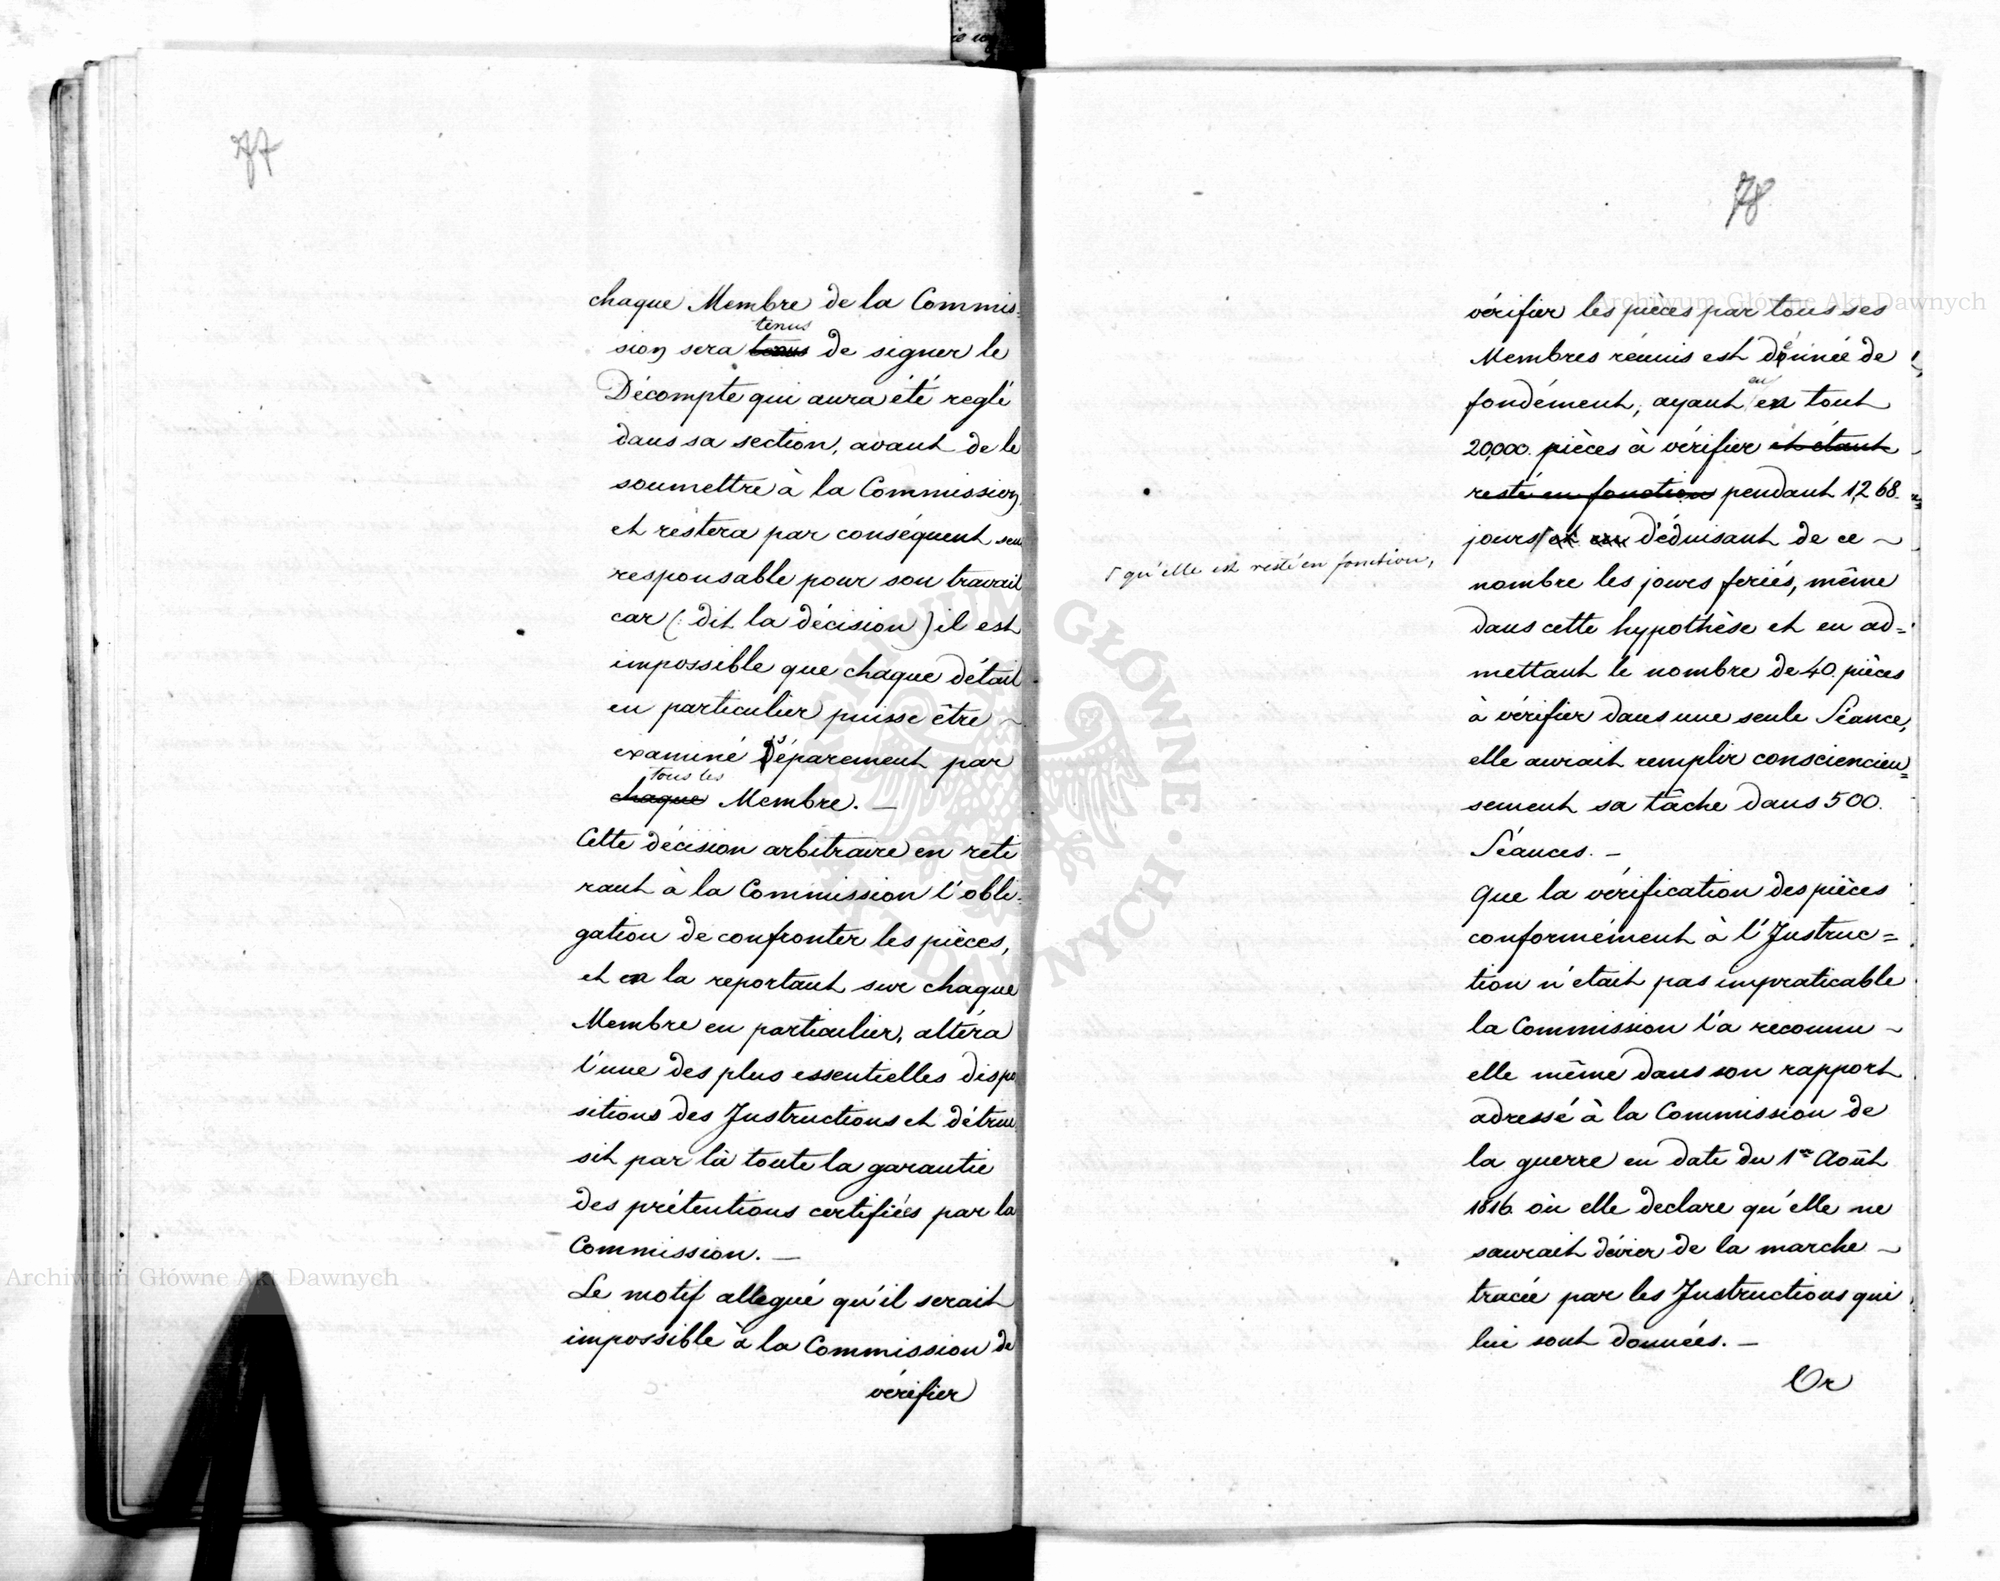 77
chaque Membre de la Commis=
tenus
sion sera tenus de signer le
Décompte qui aura été reglé
dans sa section, avant de le
soumettre à la Commission,
et restera par conséquent seu
responsable pour son travail
car (: dit la décision) il est
impossible que chaque détail
en particulier puisse être ~
examiné séparement par
tous les
chaque Membre. —
Cette décision arbitraire en reti
rant à la Commission l'obli=
gation de confronter les pièces,
et en la reportant sur chaque
Membre en particulier, altéra
l'une des plus essentielles dispo
sitions des Instructions et détrui
sit par là toute la garantie
des prétentions certifiées par la
Commission. —
Le motif allegué qu'il serait
impossible à la Commission de
vérifier
78
vérifier les pièces par tous ses
Membres réunis est dénuée de
fondément, ayant en tout
en
20,000. pièces à vérifier et étant
resté en fonction pendant 1,268.
jours et en déduisant de ce ~
qu'elle est resté en fonction,
nombre les jours feriés, même
dans cette hypothèse et en ad=
mettant le nombre de 40. pièces
à vérifier dans une seule Séance,
elle aurait remplir consciencieu=
sement sa tâche dans 500.
Séances. —
Que la vérification des pièces
conformément à l'Instruc=
tion n'etait pas impraticable
la Commission l'a reconnu ~
elle même dans son rapport
adressé à la Commission de
la guerre en date du 1er Août
1816. où elle declare qu'elle ne
saurait dévier de la marche ~
tracée par les Instructions qui
lui sont données. —
Or
Archiwum Główne Akt Dawnych
Archiwum Główne Akt Dawnych
ARCHIWUM GŁÓWNE AKT DAWNYCH